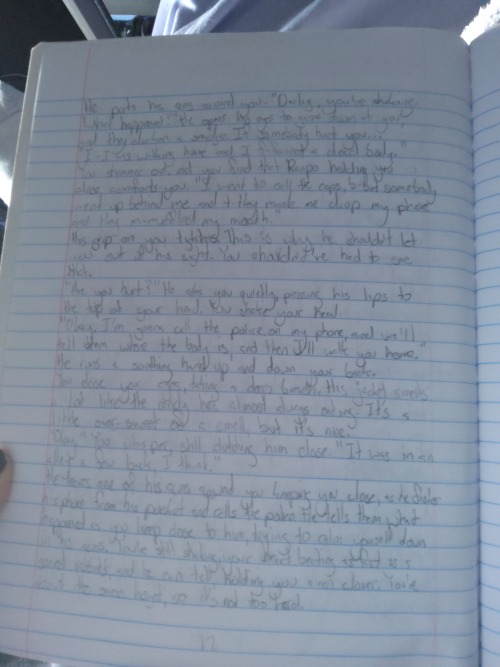 He puts his arms around you. "Darling, you're shaking.
What happened?" He opens his eyes to look down at you,
and they darken a smidge. If somebody hurt you...
"I-I was walking here and I found a dead body."
You stammer out, and you find that Ranpo holding you
close comforts you. "I went to call the cops, b-but somebody
went up behind me and they made me drop my phone
and they my mouth."
His grip on you tightens. This is why he shouldn't let
you out of his sight. You shouldn't've had to see
that.
"Are you hurt?" He asks you quietly, pressing his lips to
the top of your head. You shake your head.
"Okay, I'm gonna call the police on my phone, and we'll
tell them where the body is, and then I'll walk you home."
He runs a soothing hand up and down your back.
You close your eyes, taking a deep breath. His jacket smells
a lot like the candy he's almost always eating. It's a
little over-sweet of a smell, but it's nice.
"Okay." You whisper, still clutching him close. "It was in an
alley a few back, I think."
He leaves one of his arms around you keeping you close, as he
his phone from his pocket and calls the police. He tells them what
happened as you keep close to him, trying to calm yourself down
You're still shaking, your heart beating at fast
and he can tell. Holding you close. You're
the same height, so it's not too hard.
12